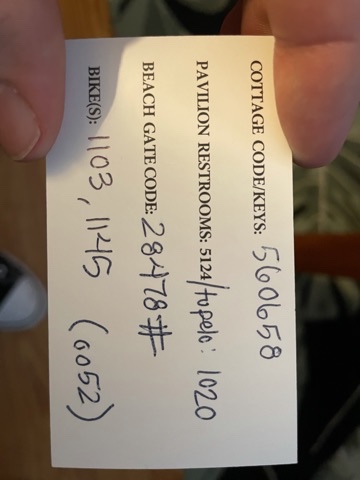 COTTAGE CODE/KEYS: 560658
PAVILION RESTROOMS: 5124/tupelo: 1020
BEACH GATE CODE: 28478#
BIKE(S): 1103, 1145 (6052)